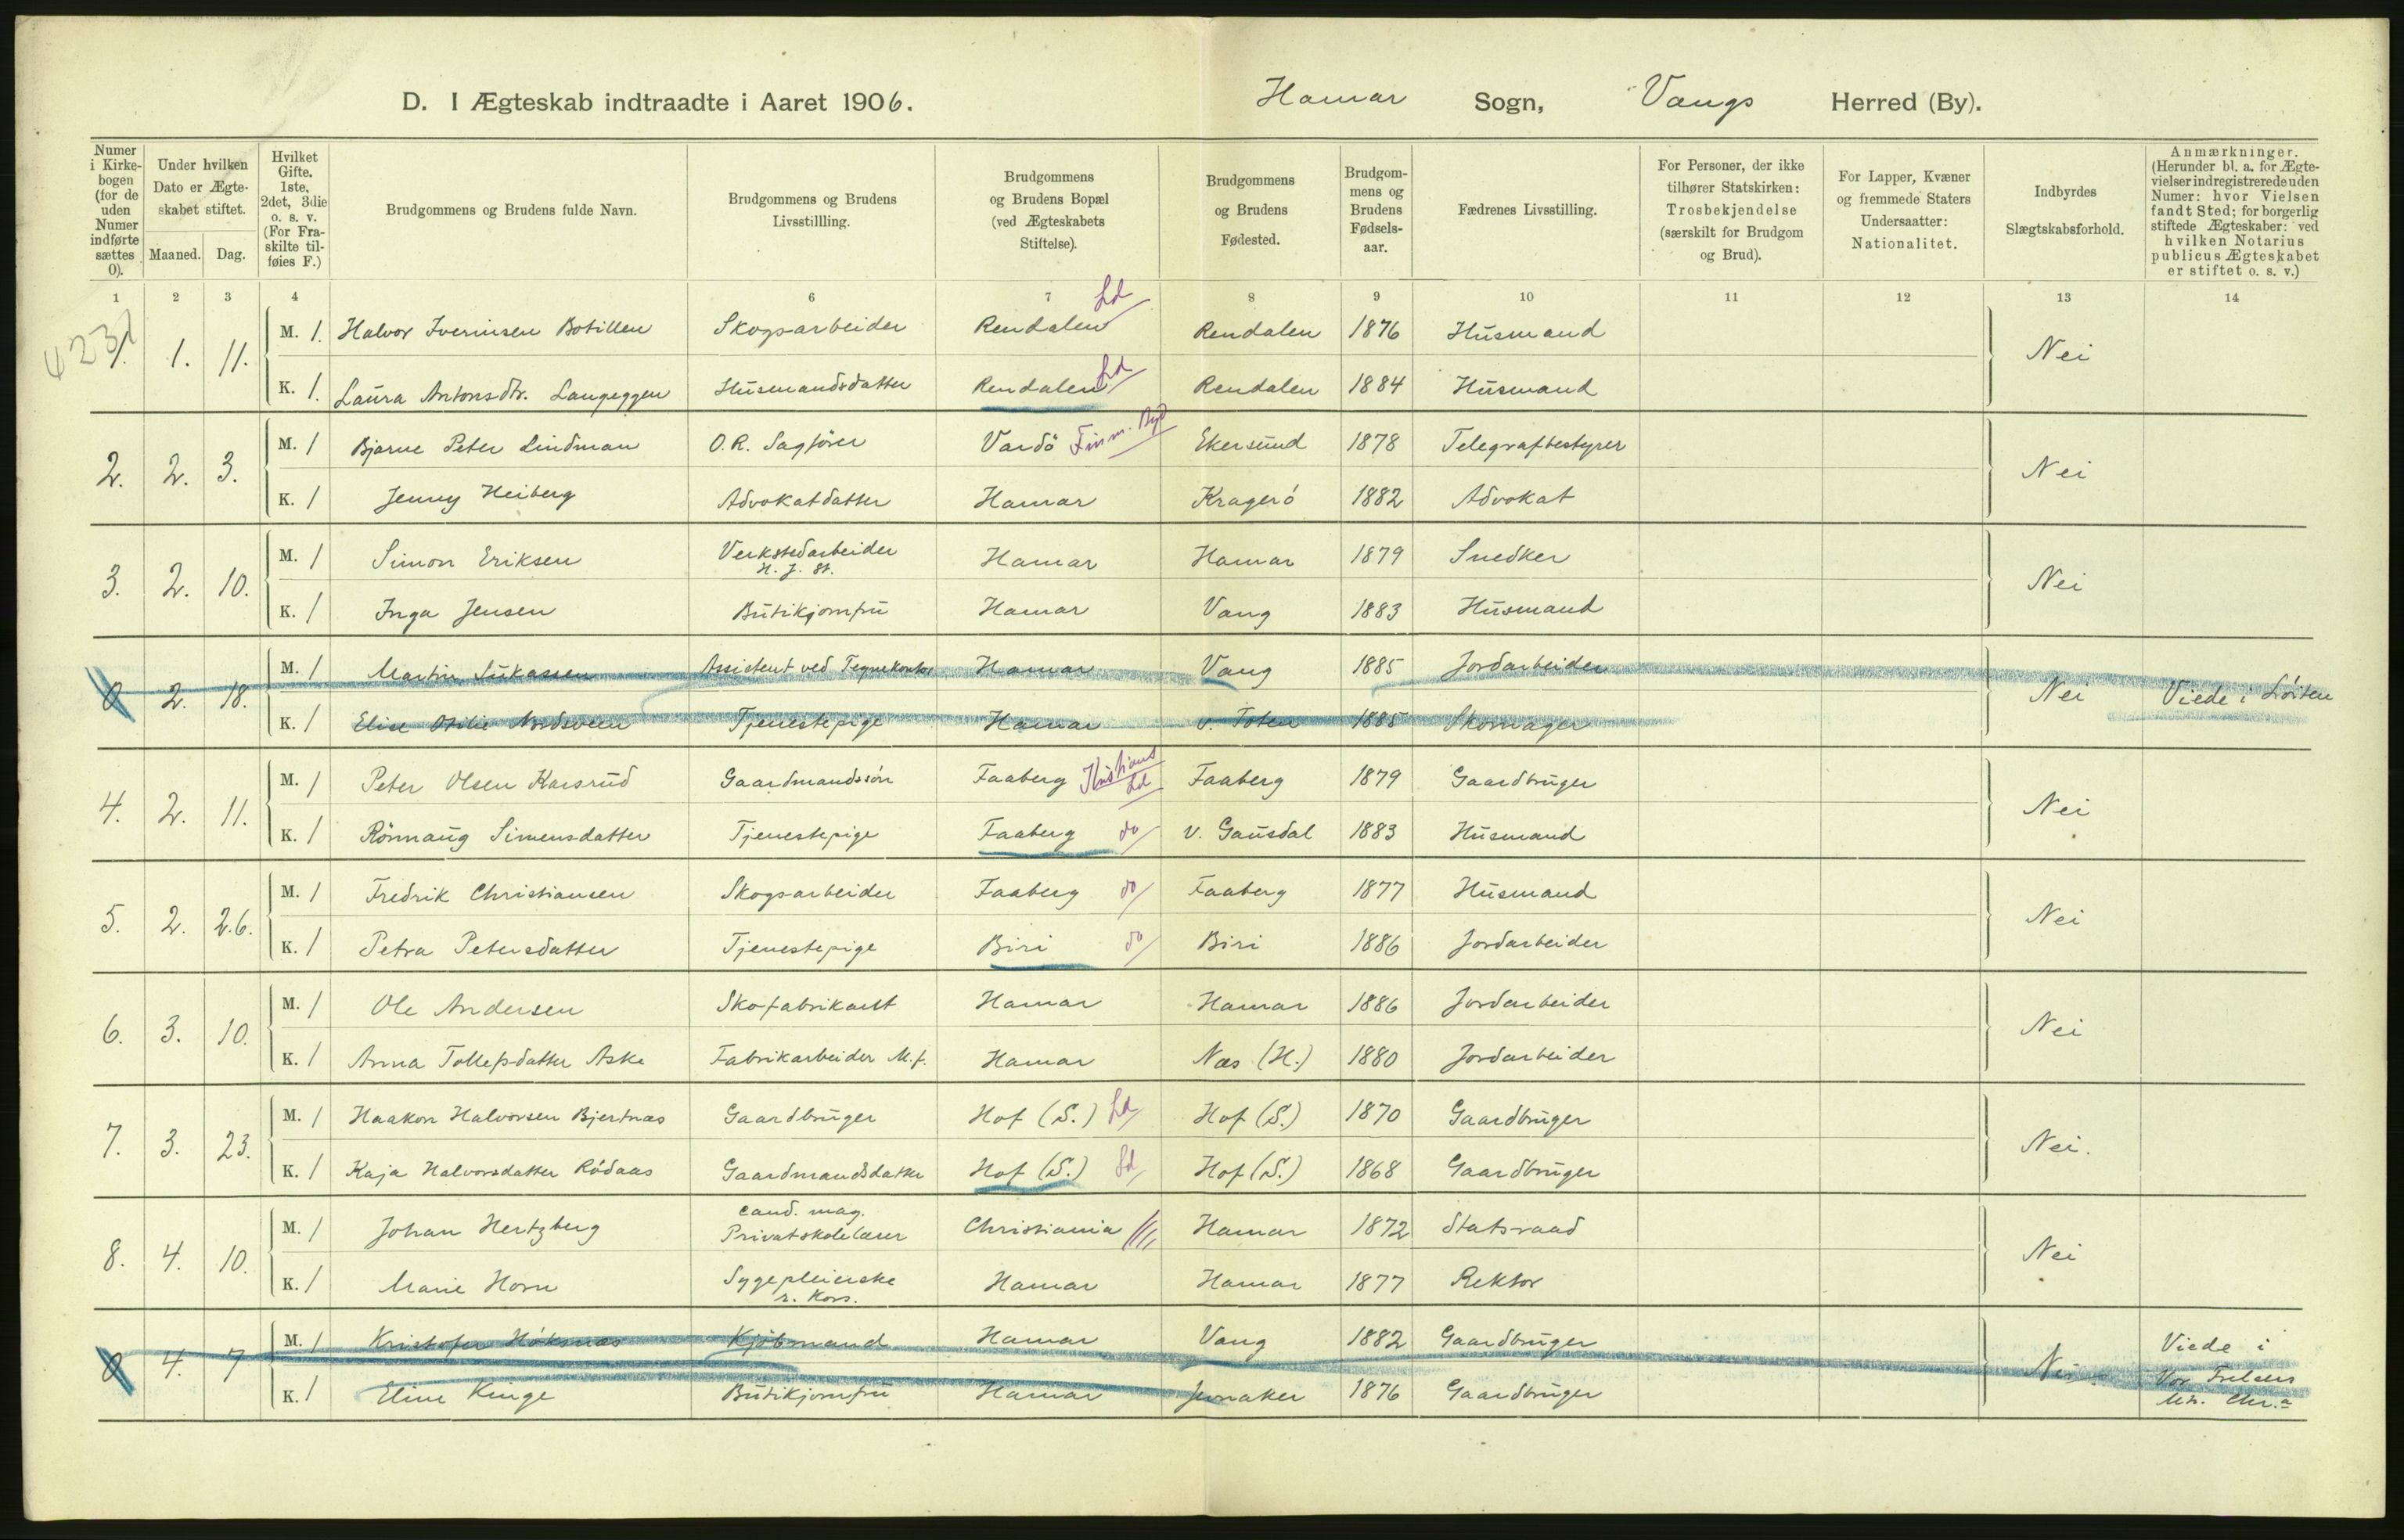 D. I Ægteskab indtraadte i Aaret 1906. Hamar Sogn, Vangs Herred (By).
Numer i Kirkebogen (for de uden Numer indførte sættes 0).
Under hvilken Dato er Ægteskabet stiftet.
Maaned. Dag.
Hvilket Gifte. 1ste, 2det, 3die o. s. v. (For Fraskilte tilføies F.)
Brudgommens og Brudens fulde Navn.
Brudgommens og Brudens Livsstillling.
Brudgommens og Brudens Bopæl (ved Ægteskabets Stiftelse).
Brudgommens og Brudens Fødested.
Brudgommens og Brudens Fødselsaar.
Fædrenes Livsstilling.
For Personer, der ikke tilhører Statskirken: Trosbekjendelse (særskilt for Brudgom og Brud).
For Lapper, Kvæner og fremmede Staters Undersaatter: Nationalitet.
Indbyrdes Slægtskabsforhold.
Anmærkninger. (Herunder bl. a. for Ægtevielser indregistrerede uden Numer: hvor Vielsen fandt Sted; for borgerlig stiftede Ægteskaber: ved hvilken Notarius publicus Ægteskabet er stiftet o. s. v.)
1 2 3 4 6 7 8 9 10 11 12 13 14
1. 1. 11. M. 1. Halvor Iverinsen Botillen Skogsarbeider Rendalen Ld Rendalen 1876 Husmand Nei
K. 1. Laura Antonsdtr. Langeggen Husmandsdatter Rendalen Ld Rendalen 1884 Husmand
2. 2. 3. M. 1 Bjarne Peter Lindman O.R. Sagfører Vardö Finm. Byd Ekersund 1878 Telegrafbestyrer Nei
K. 1 Jenny Heiberg Advokatdatter Hamar Kragerö 1882 Advokat
3. 2. 10. M. 1 Simon Eriksen Verkstedarbeider H. J. St. Hamar Hamar 1879 Snedker Nei
K. 1 Inga Jensen Butikjomfru Hamar Vang 1883 Husmand
0 2. 18. M. 1 Martin Lukassen Assistent ved Tegnekontor Hamar Vang 1885 Jordarbeider Nei Viede i Löiten
K. 1 Elise Otilie Nordsveen Tjenestepige Hamar V. Toten 1885 Skomager
4. 2. 11. M. 1 Peter Olsen Karsrud Gaardmandssön Faaberg Kristians Ld Faaberg 1879 Gaardbruger Nei
K. 1 Rönnaug Simensdatter Tjenestepige Faaberg do V. Gausdal 1883 Husmand
5. 2. 26. M. 1 Fredrik Christiansen Skogsarbeider Faaberg do Faaberg 1877 Husmand Nei
K. 1 Petra Petersdatter Tjenestepige Biri do Biri 1886 Jordarbeider
6. 3. 10. M. 1 Ole Andersen Skofabrikant Hamar Hamar 1886 Jordarbeider Nei
K. 1 Anna Tollefsdatter Aske Fabrikarbeider M.f. Hamar Næs (H.) 1880 Jordarbeider
7. 3. 23. M. 1 Haakon Halvorsen Bjertnæs Gaardbruger Hof (S.) Ld Hof (S.) 1870 Gaardbruger Nei.
K. 1 Kaja Halvorsdatter Rödaas Gaardmandsdatter Hof (S.) Ld Hof (S.) 1868 Gaardbruger
8. 4. 10. M. 1 Johan Hertzberg cand. mag. Privatskolelærer Christiania Hamar 1872 Statsraad Nei
K. 1 Marie Horn Sygepleierske r. Kors. Hamar Hamar 1877 Rektor
0 4. 7 M. 1 Kristofer Höksnæs Kjöbmand Hamar Vang 1882 Gaardbruger Nei Viede i
K. 1 Eline Kinge Butikjomfru Hamar Jevnaker 1876 Gaardbruger Vor Frelsers
Chr.a